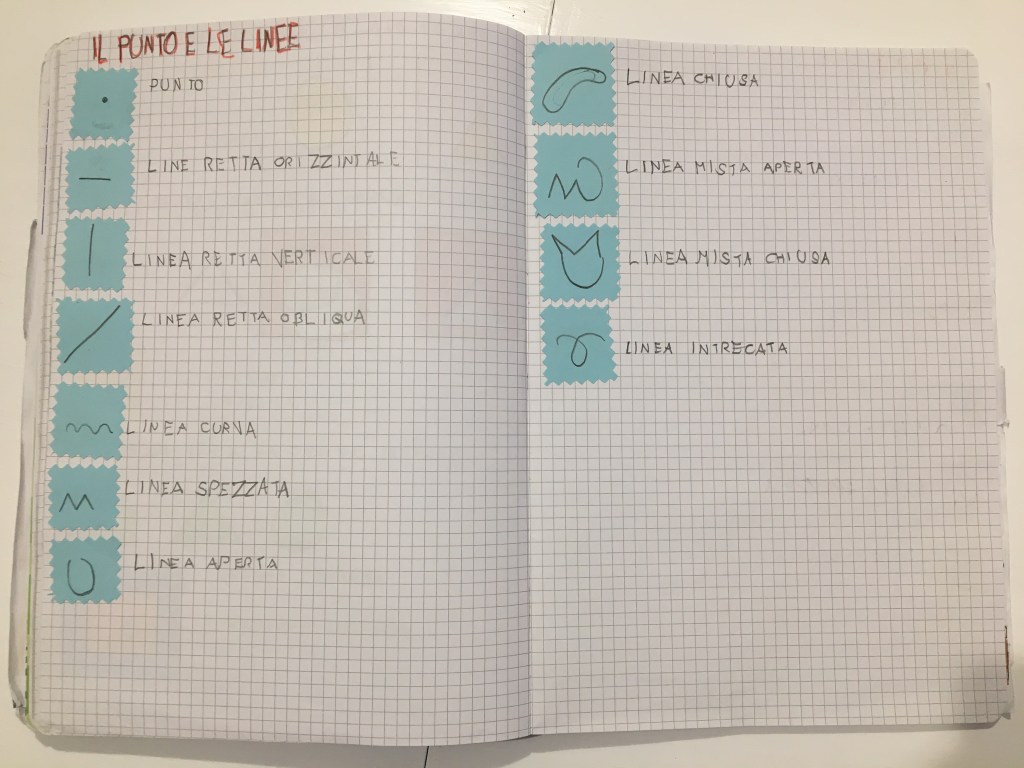 IL PUNTO E LE LINEE
PUNTO
LINE RETTA ORIZZINTALE
LINEA RETTA VERTICALE
LINEA RETTA OBLIQUA
LINEA CURVA
LINEA SPEZZATA
LINEA APERTA
LINEA CHIUSA
LINEA MISTA APERTA
LINEA MISTA CHIUSA
LINEA INTRECATA